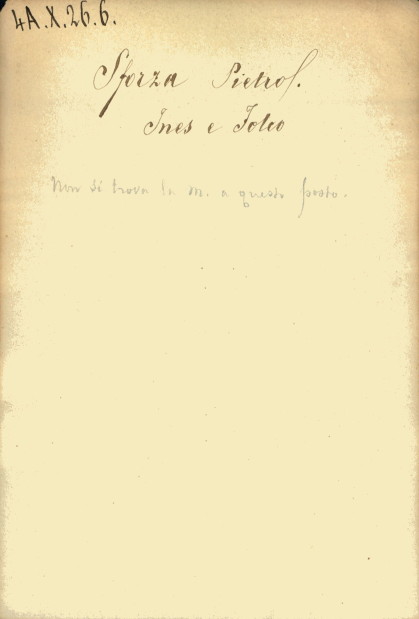 4A.X.26.6.
Sforza Pietro f.
Ines e Folco
Non si trova la m. a questo posto.